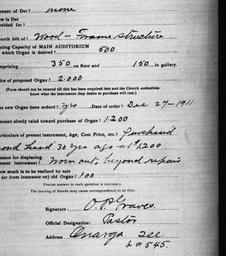 ount of Debt none
ow is Debt
ovided for?
urch bilt of? Wood - Frame structure
ating Capacity of MAIN AUDITORIUM
which Organ is desired? 500
mprising 350 on floor and 150 in gallery.
ice of proposed Organ? 2.000
(Form should not be returned till this has been required into and the Church authorities
know what the instrument they desire to purchase will cost.)
s new Organ been ordered? Yes Date of order? Dec 27-1911
mount already raised toward purchase of Organ? 1200
articulars of present instrument, Age, Cost Price, etc.? Purchased
ond hand 30 yrs ago at $1200
eason for displacing
esent instrument? Worn out, beyond repair
ow much is to be realized by sale
(or from insurance on) old Organ? 100
Precise answer to each question is necessary.
The leaving of blanks may cause correspondence to be tiled.
Signature O.P. Graves
Official Designation: Pastor
Address Onarga Ill.
L # 545.